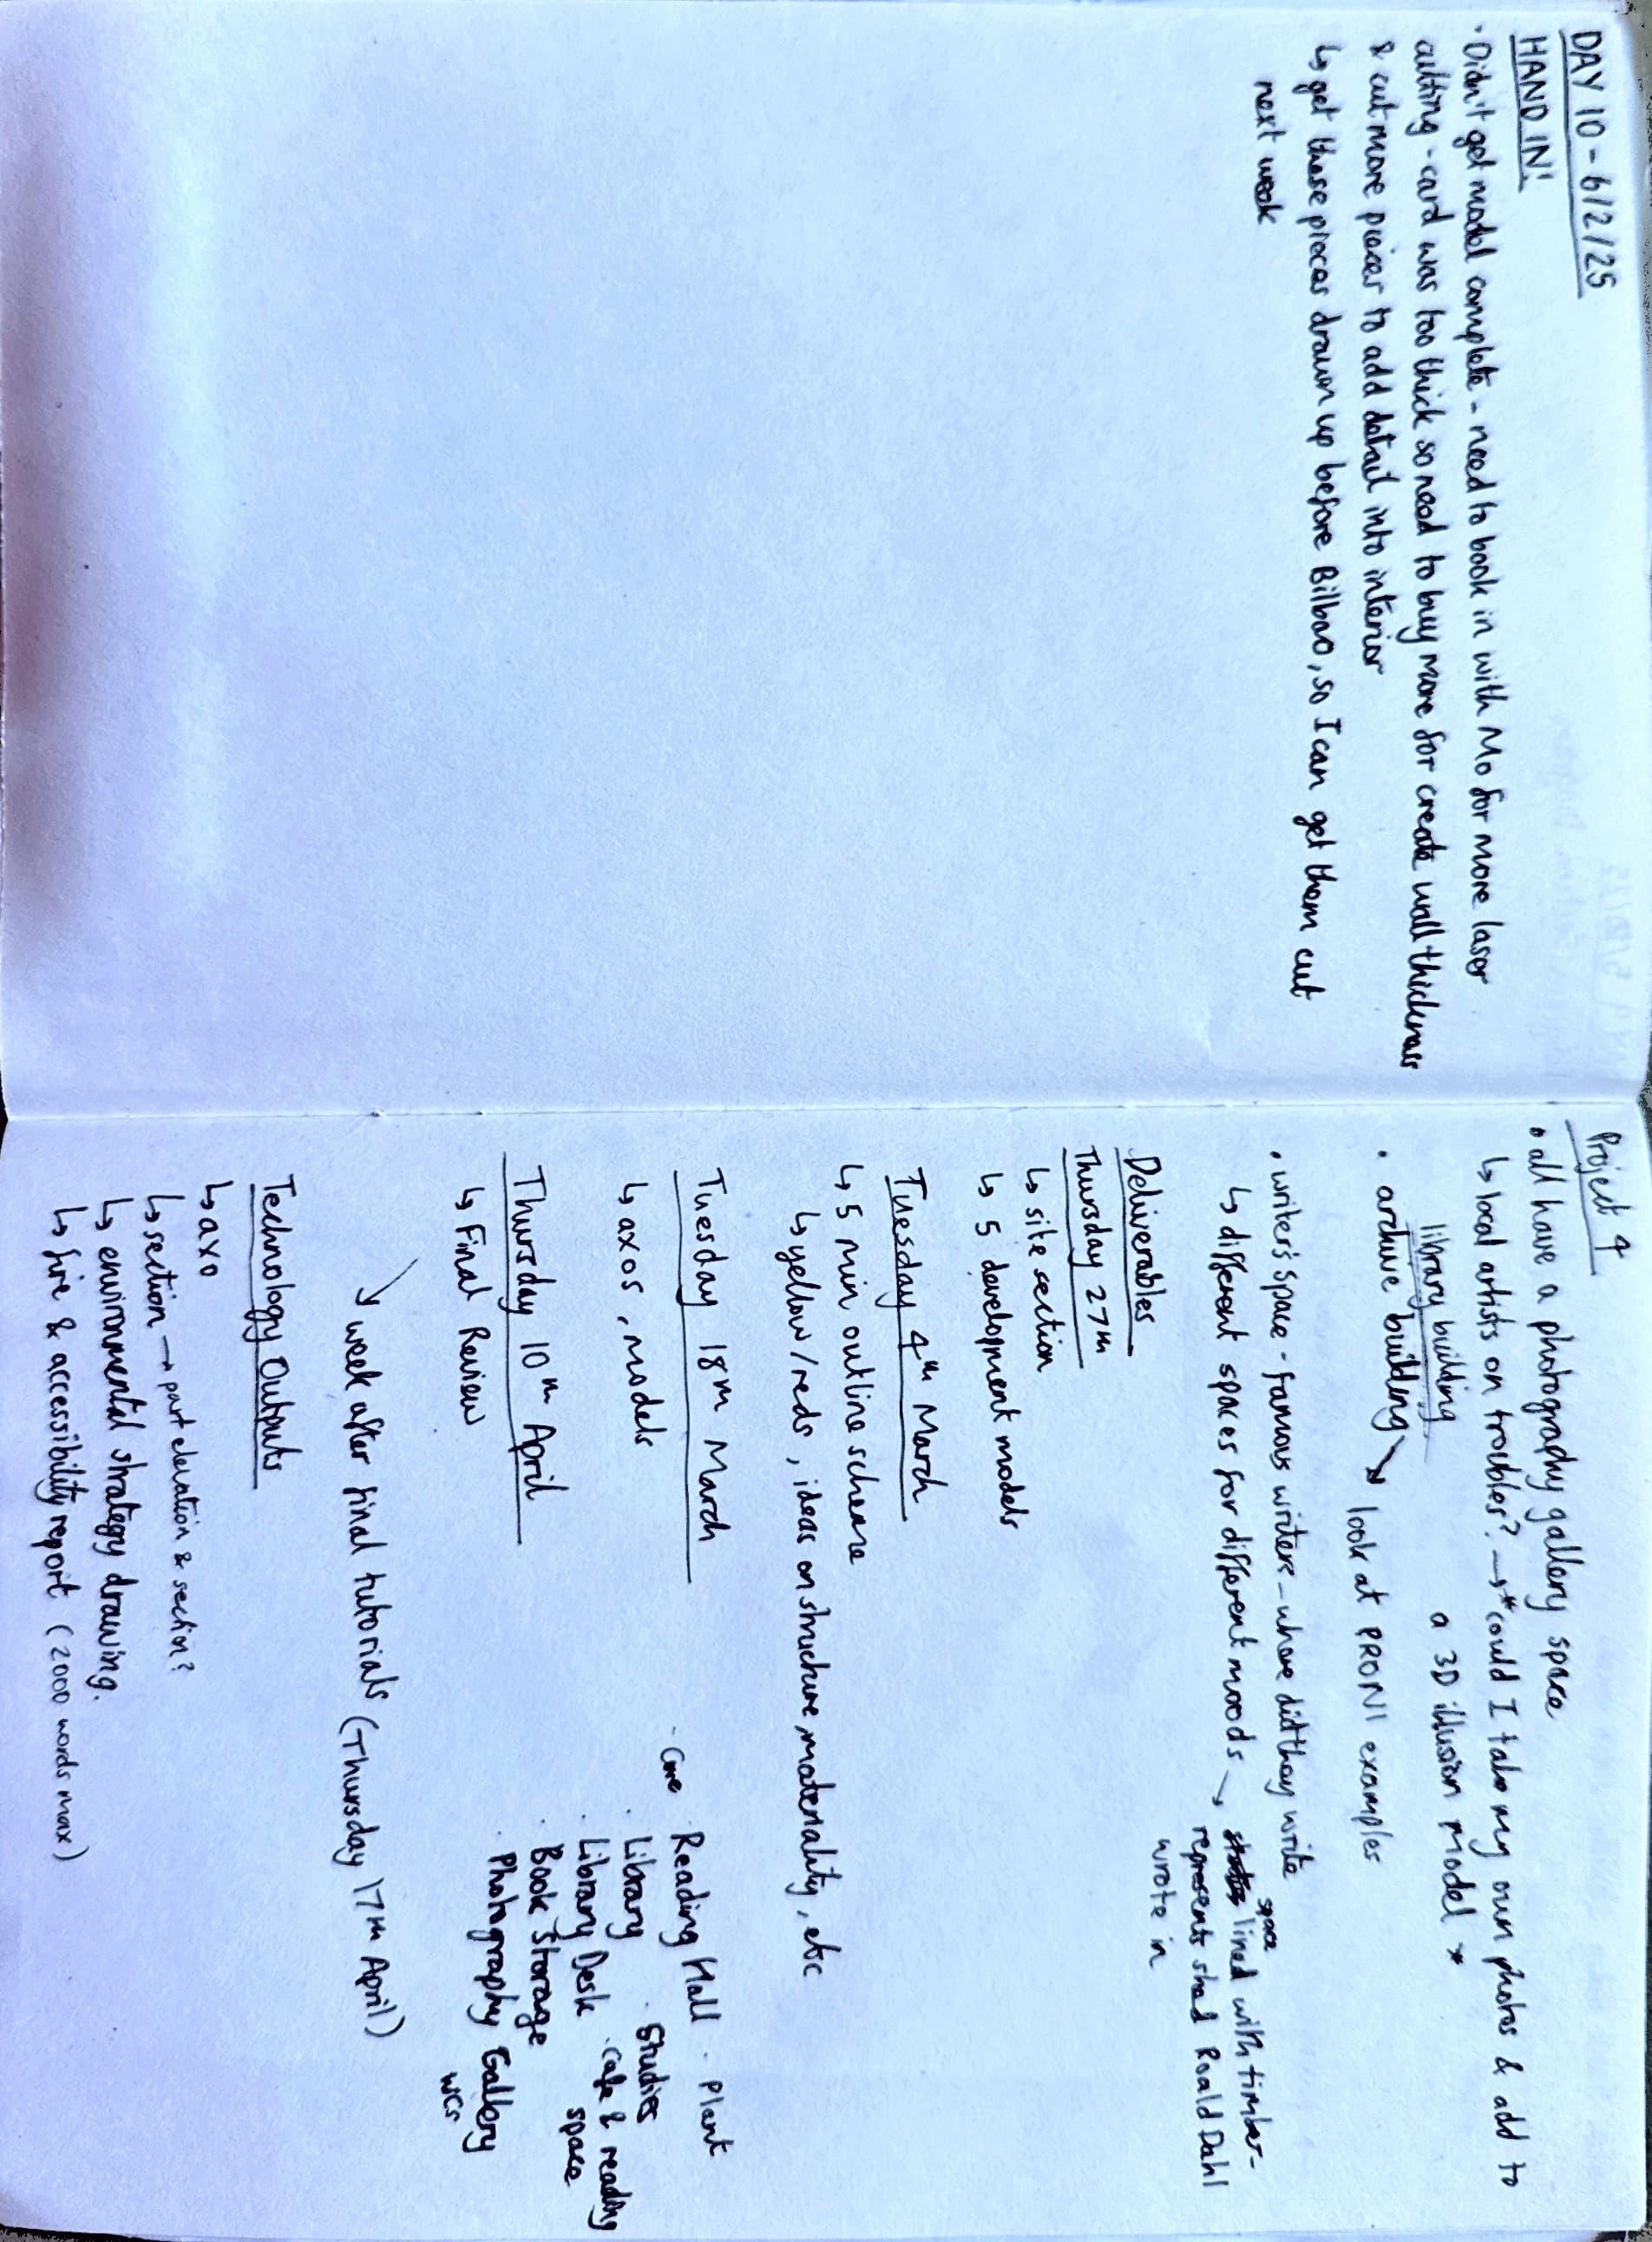 DAY 10 - 6/2/25
HAND IN!
· Didn't get model complete - need to book in with Mo for more laser
cutting - card was too thick so need to buy more for create wall thickness
& cut more pieces to add detail into interior
↳ get these pieces drawn up before Bilbao, so I can get them cut
next week
Project 4
• all have a photography gallery space
↳ local artists on troubles? → *could I take my own photos & add to
a 3D illusion model *
library building
· archive building → look at PRONI examples
· writer's space - famous writers - where did they write
↳ different spaces for different moods → space lined with timber -
represents shed Roald Dahl
wrote in
Deliverables
Thursday 27th
↳ site section
↳ 5 development models
Tuesday 4th March
↳ 5 min outline scheme
↳ yellow/reds, ideas on structure, materiality, etc
Tuesday 18th March
↳ axos, models
Thursday 10th April
↳ Final Review
↘ week after final tutorials (Thursday 17th April)
· Core
· Reading Hall
· Plant
· Library
· Studies
· Library Desk
· cafe & reading
space
· Book Storage
· Photography Gallery
WCs
Technology Outputs
↳ axo
↳ section → part elevation & section?
↳ environmental strategy drawing.
↳ fire & accessibility report (2000 words max)